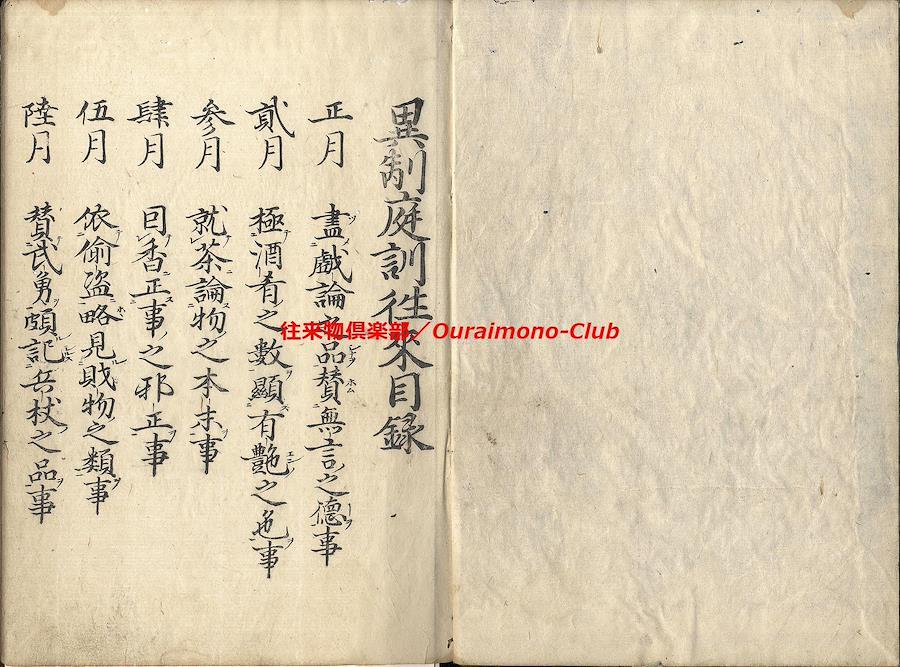 異制庭訓往来目録
正月 盡戯論之品賛無言之德事
貳月 極酒肴之數顯有艶之色事
参月 就茶論物之本末事
肆月 回香正事之邪正事
伍月 依偷盗略見賊物之類事
陸月 賛武勇頗記兵杖之品事
往来物倶楽部／Ouraimono-Club